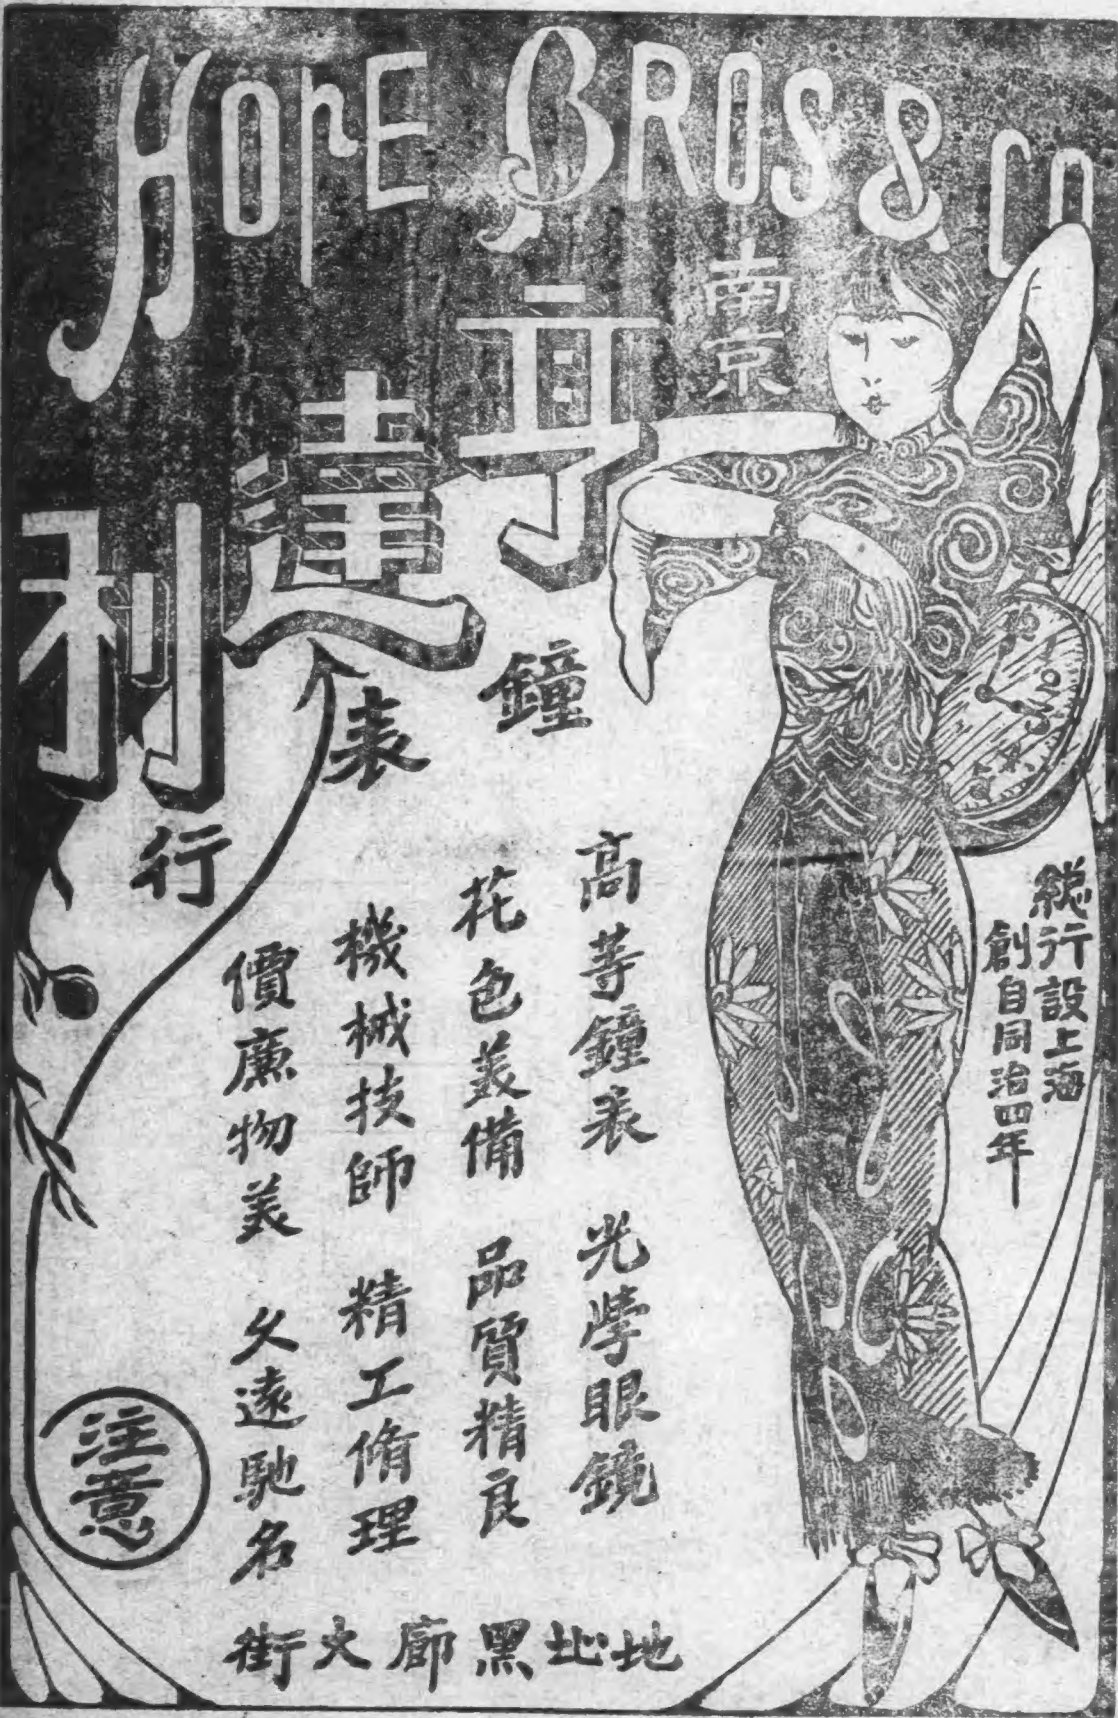 HOPE BROS & CO
南京
亨達利
鐘表行
總行設上海
創自同治四年
高等鐘表 光學眼鏡
花色美備 品質精良
機械技師 精工脩理
價廉物美 久遠馳名
注意
地址黑廊大街